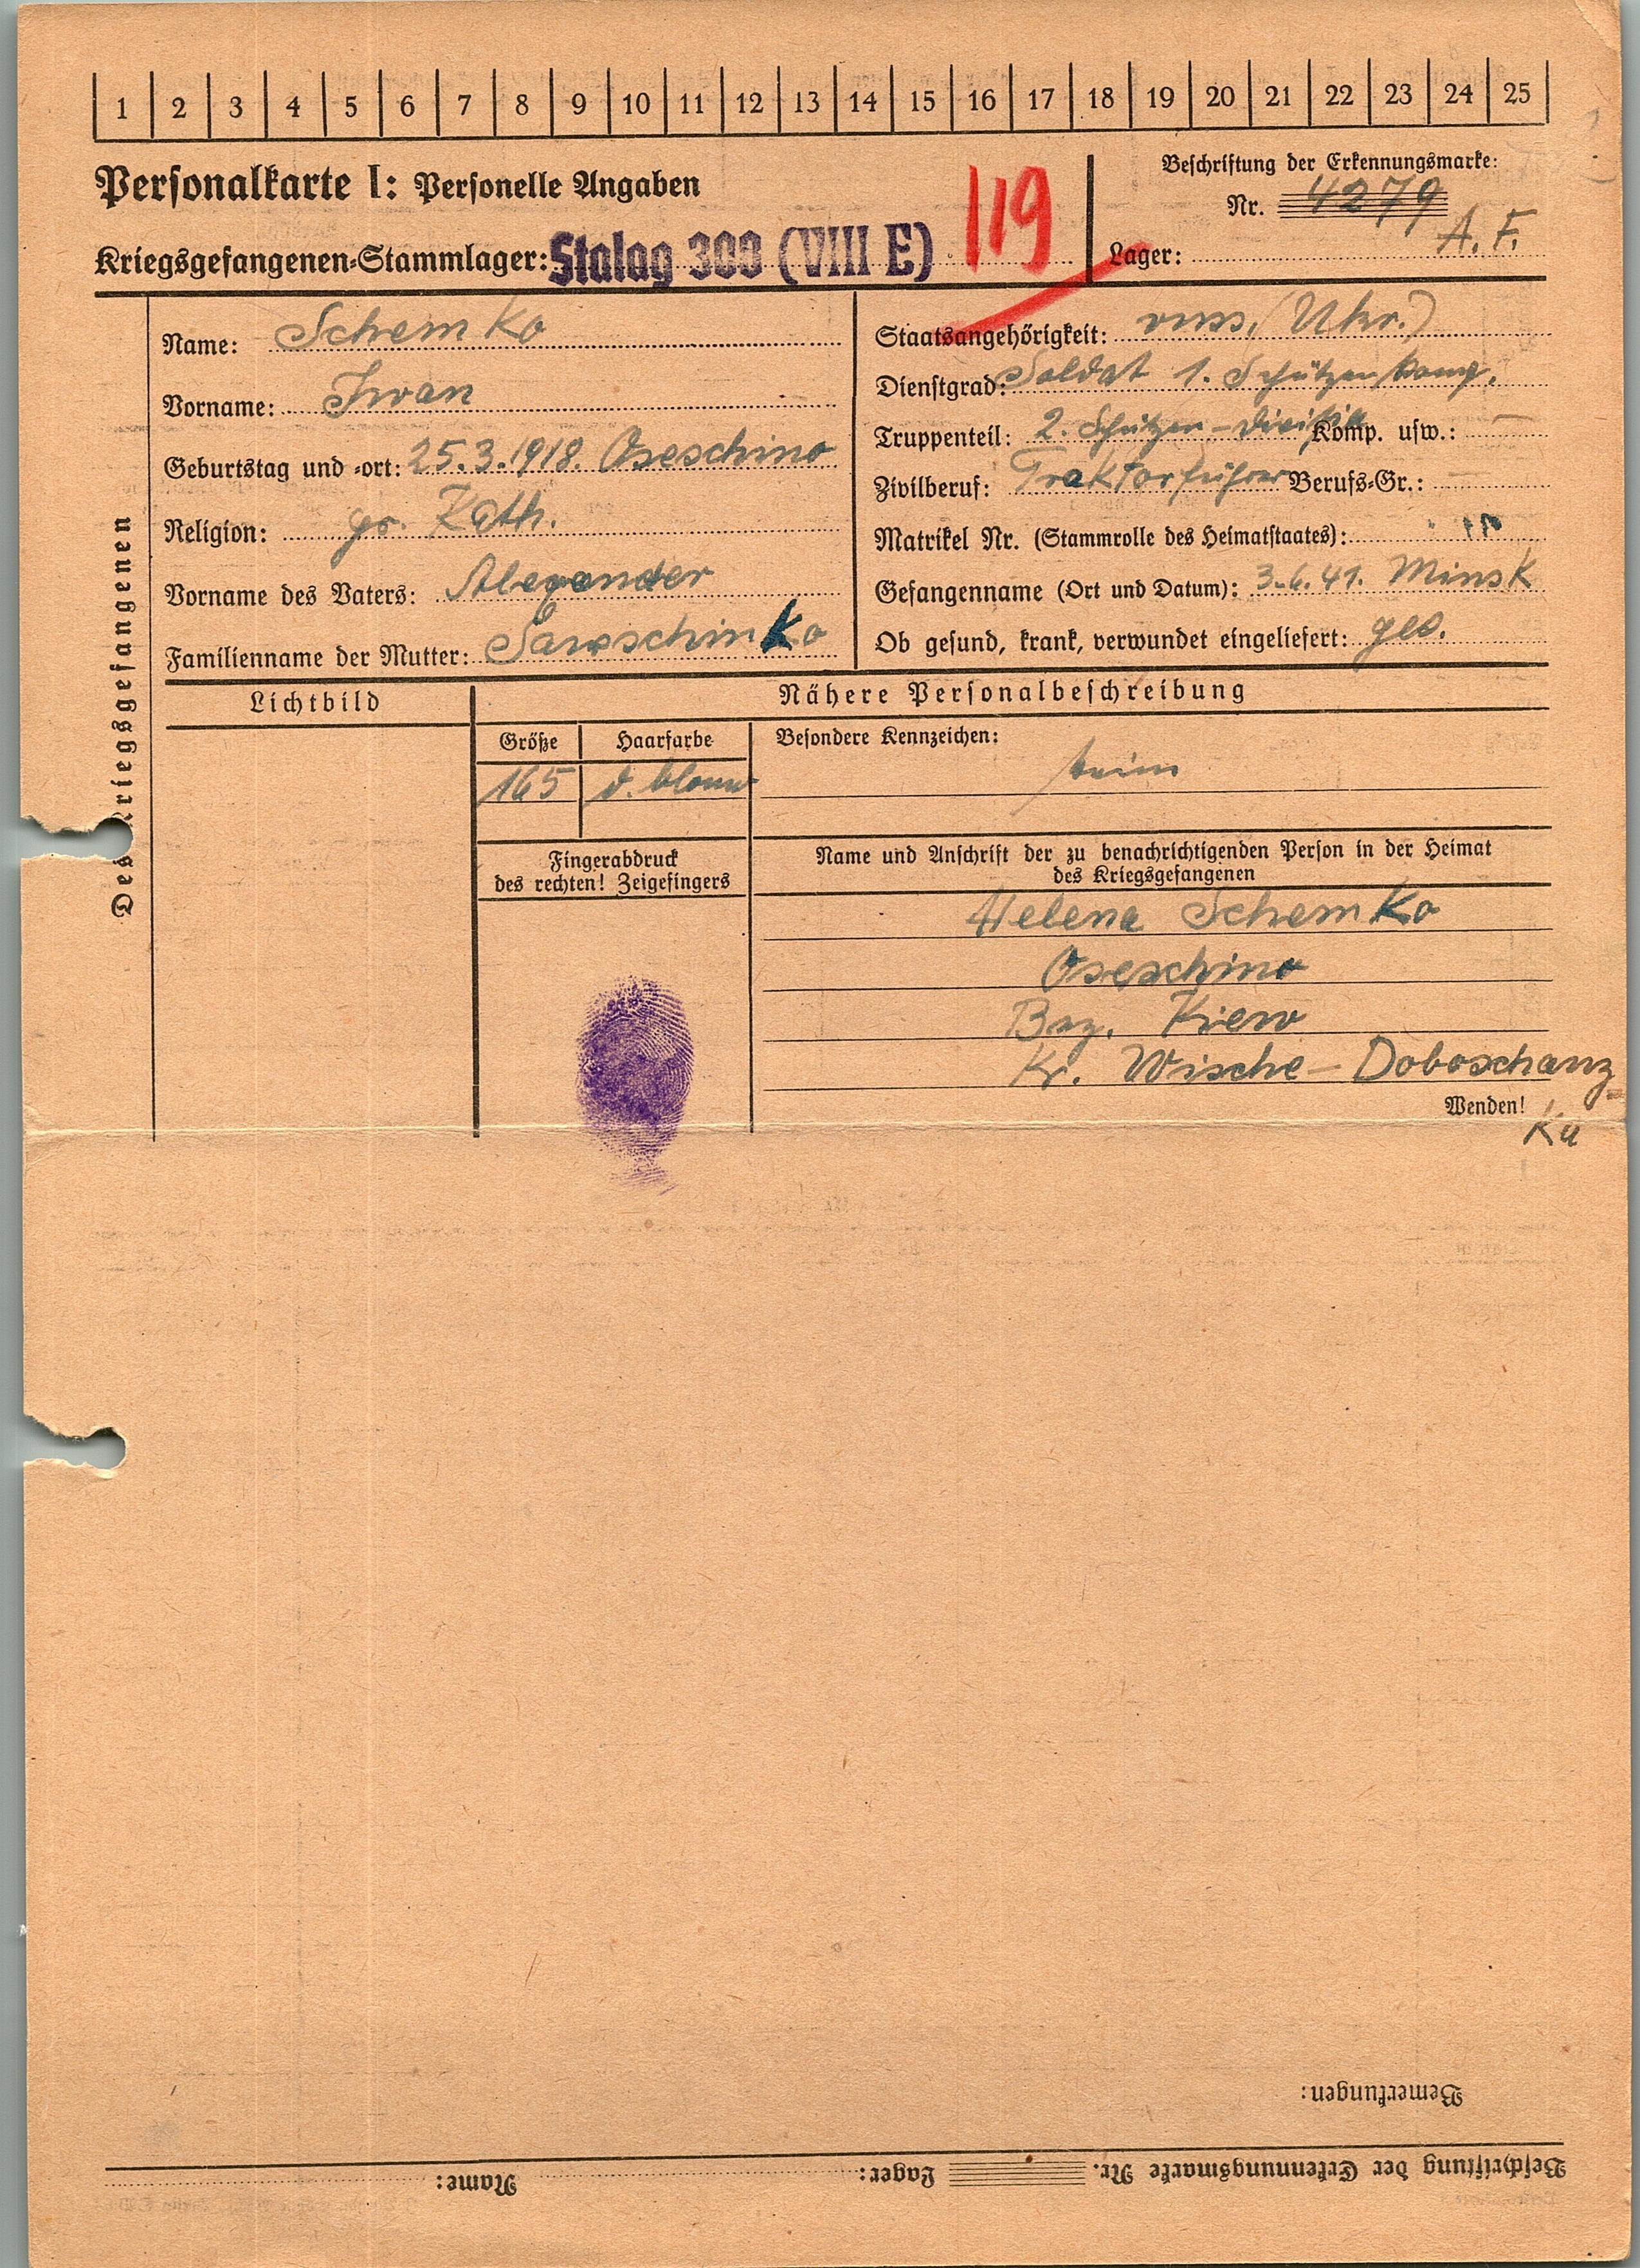 1 2 3 4 5 6 7 8 9 10 11 12 13 14 15 16 17 18 19 20 21 22 23 24 25
Personalkarte I: Personelle Angaben
119
Beschriftung der Erkennungsmarke:
Nr. 4279
Kriegsgefangenen-Stammlager: Stalag 308 (VIII E)
Lager: A. F.
Des Kriegsgefangenen
Name: Schemko
Vorname: Iwan
Geburtstag und -ort: 25.3.1918. Oseschino
Religion: gr. Kath.
Vorname des Vaters: Alexander
Familienname der Mutter: Saroschinko
Staatsangehörigkeit: russ. (Ukr.)
Dienstgrad: Soldat 1. Schützen Komp.
Truppenteil: 2. Schützen-Division Komp. usw.: —
Zivilberuf: Traktorführer Berufs-Gr.: —
Matrikel Nr. (Stammrolle des Heimatstaates):
Gefangenname (Ort und Datum): 3.6.41. Minsk
Ob gesund, krank, verwundet eingeliefert: ges.
Lichtbild
Nähere Personalbeschreibung
Größe
Haarfarbe
Besondere Kennzeichen:
165
d. blond
keine
Fingerabdruck
des rechten! Zeigefingers
Name und Anschrift der zu benachrichtigenden Person in der Heimat
des Kriegsgefangenen
Helena Schemko
Oseschino
Bez. Kiew
Kr. Wische-Doboschanz
Wenden!
Ku
Bemerkungen:
Beschriftung der Erkennungsmarke Nr. Lager: Name: